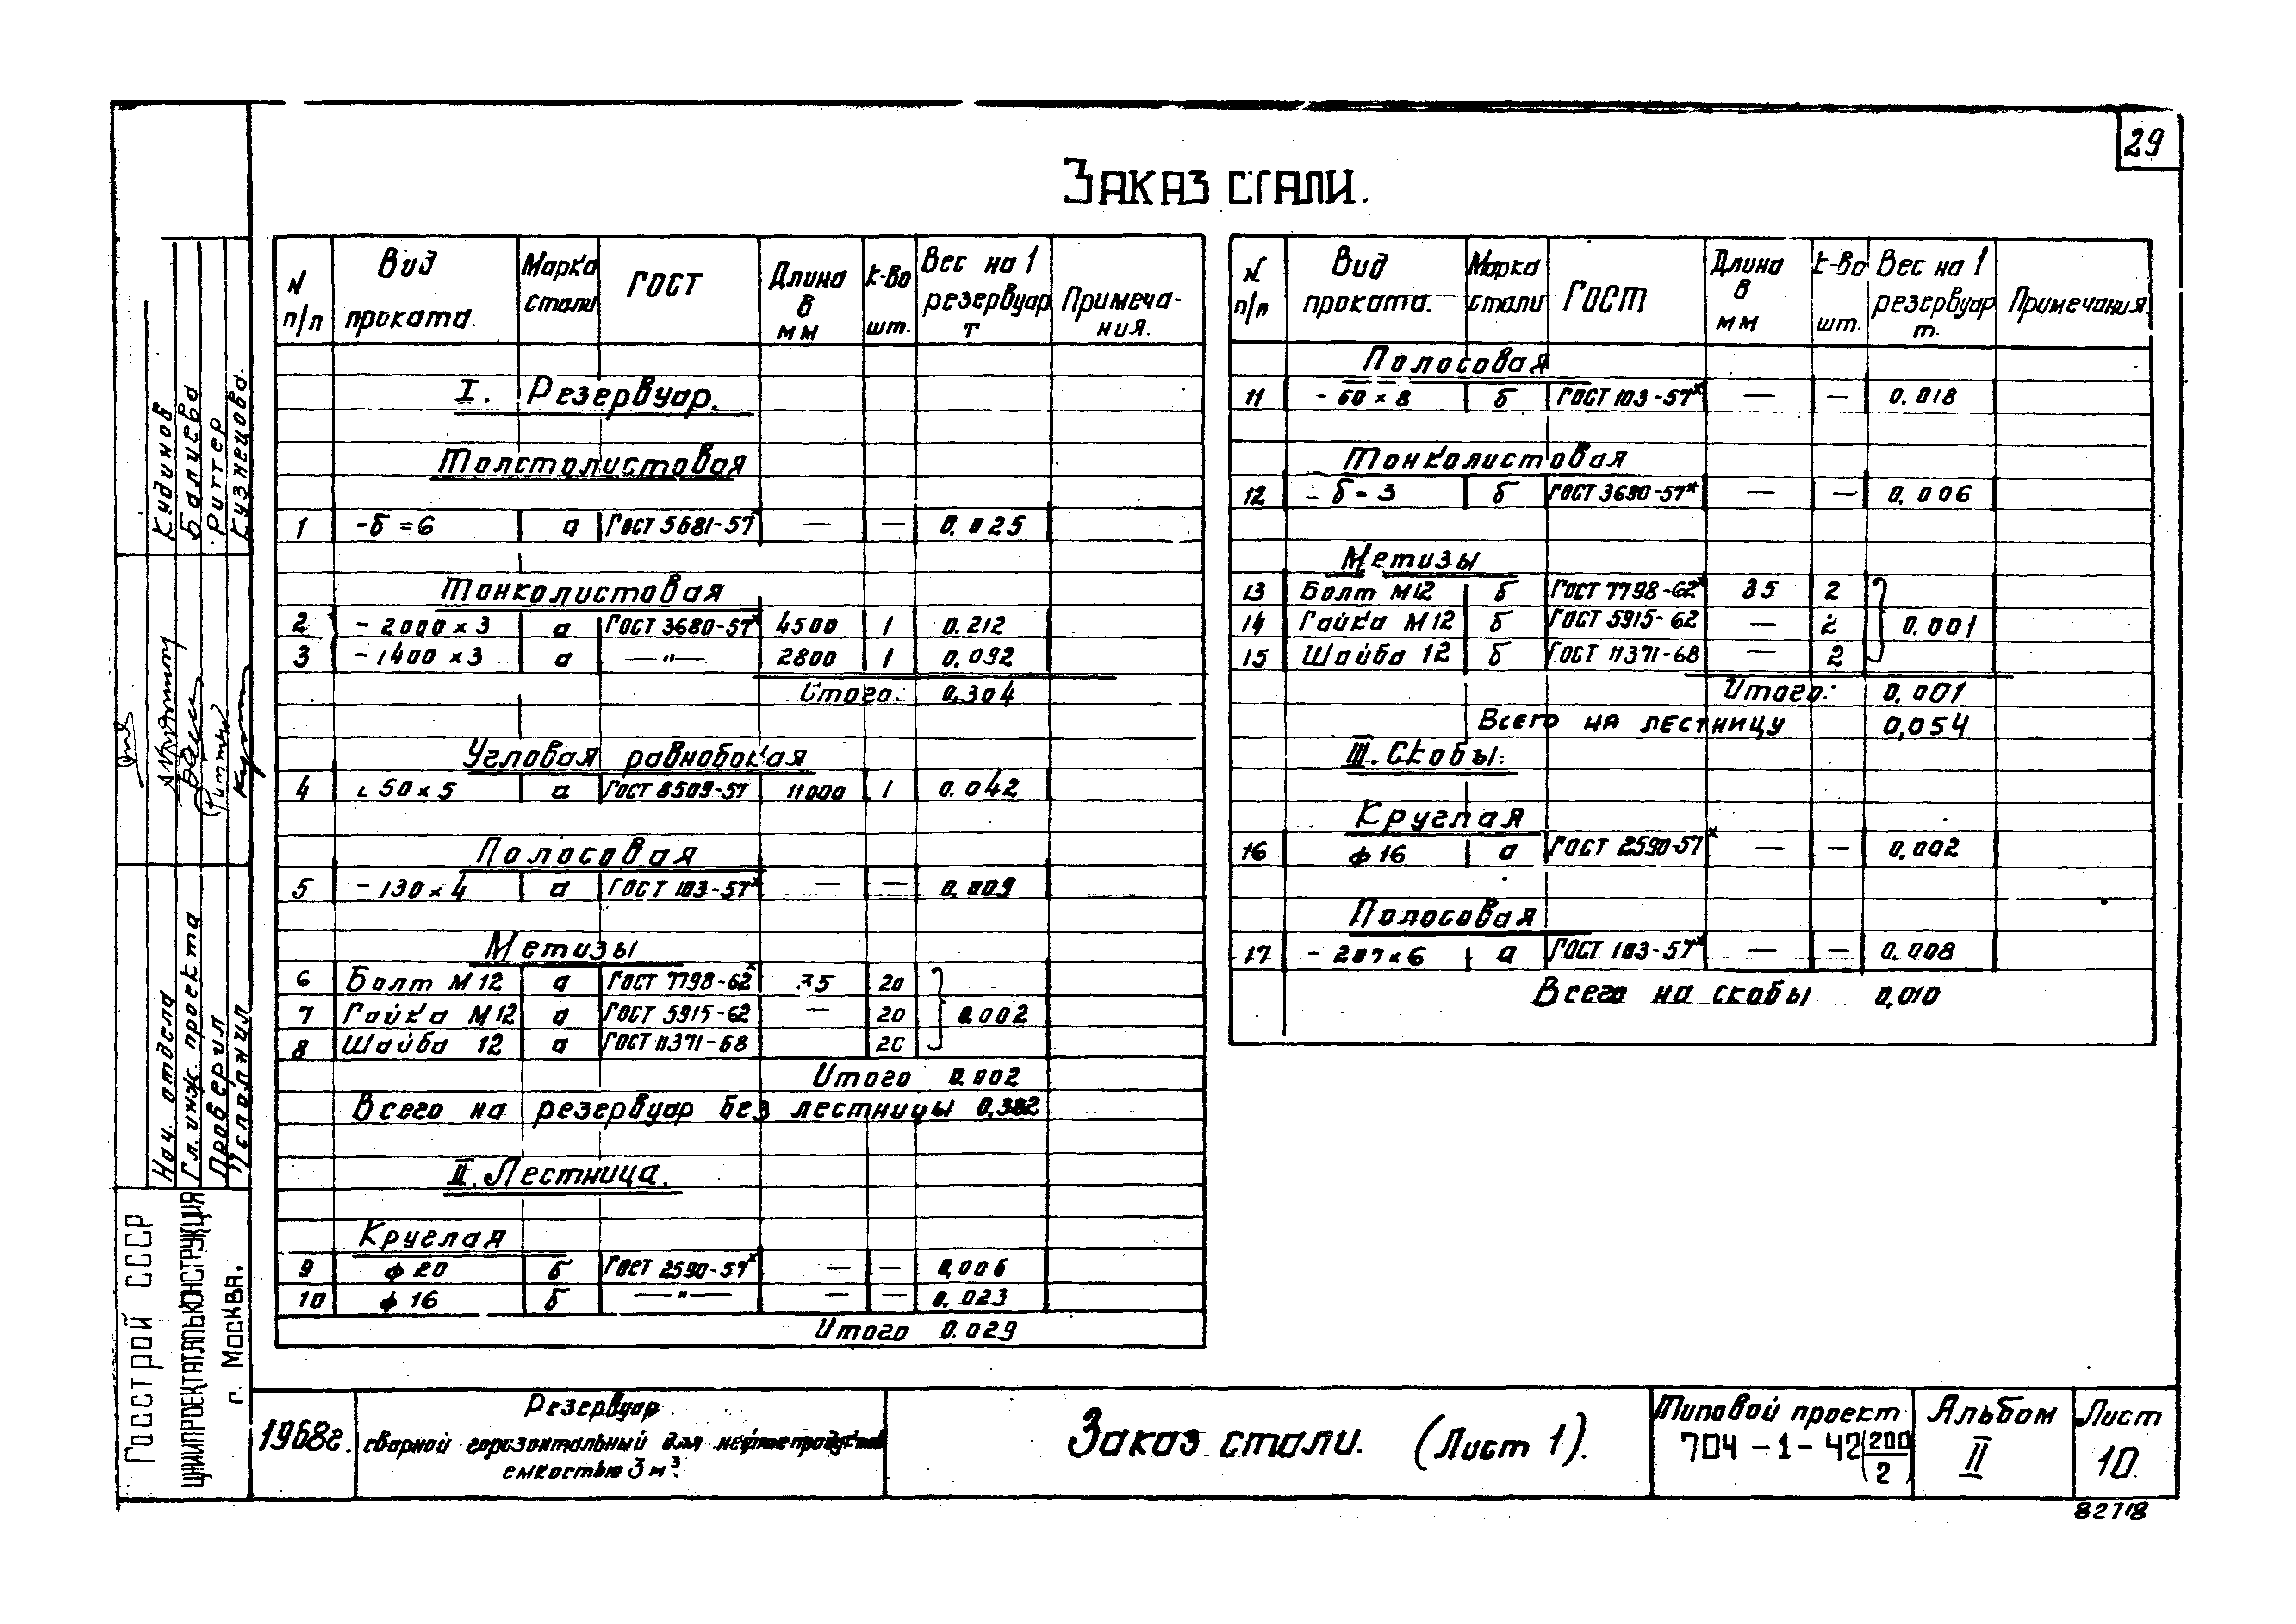 29
Заказ стали.
N п/п Вид проката. Марка стали ГОСТ Длина в мм к-во шт. Вес на 1 резервуар т Примечания.
I. Резервуар.
Толстолистовая
1 -б=6 а ГОСТ 5681-57х — — 0.025
Тонколистовая
2 -2000×3 а ГОСТ 3680-57х 4500 1 0.212
3 -1400×3 а —"— 2800 1 0.092
Итого: 0.304
Угловая равнобокая
4 ∟50×5 а ГОСТ 8509-57 11000 1 0.042
Полосовая
5 -130×4 а ГОСТ 103-57х — — 0.009
Метизы
6 Болт М12 а ГОСТ 7798-62х 35 20
7 Гайка М12 а ГОСТ 5915-62 — 20 0.002
8 Шайба 12 а ГОСТ 11371-68 20
Итого 0.002
Всего на резервуар без лестницы 0,382
II. Лестница.
Круглая
9 ф 20 б ГОСТ 2590-57х — — 0,006
10 ф 16 б —"— — — 0.023
Итого 0.029
N п/п Вид проката. Марка стали ГОСТ Длина в мм к-во шт. Вес на 1 резервуар т. Примечания.
Полосовая
11 -60×8 б ГОСТ 103-57х — — 0.018
Тонколистовая
12 -б=3 б ГОСТ 3680-57х — — 0.006
Метизы
13 Болт М12 б ГОСТ 7798-62х 35 2
14 Гайка М12 б ГОСТ 5915-62 — 2 0.001
15 Шайба 12 б ГОСТ 11371-68 — 2
Итого: 0,001
Всего на лестницу 0,054
III. Скобы:
Круглая
16 ф 16 а ГОСТ 2590-57х — — 0,002
Полосовая
17 -207×6 а ГОСТ 103-57х — — 0.008
Всего на скобы 0,010
Кудинов
Балиева
Риттер
Кузнецова.
Нач. отдела
Гл. инж. проекта
Проверил
Исполнил
Госстрой СССР
ЦНИИПРОЕКТСТАЛЬКОНСТРУКЦИЯ
г. Москва.
1968г.
Резервуар
сварной горизонтальный для нефтепродуктов
емкостью 3 м³.
Заказ стали. (Лист 1).
Типовой проект
704-1-42(200/2)
Альбом
II
Лист
10.
82718